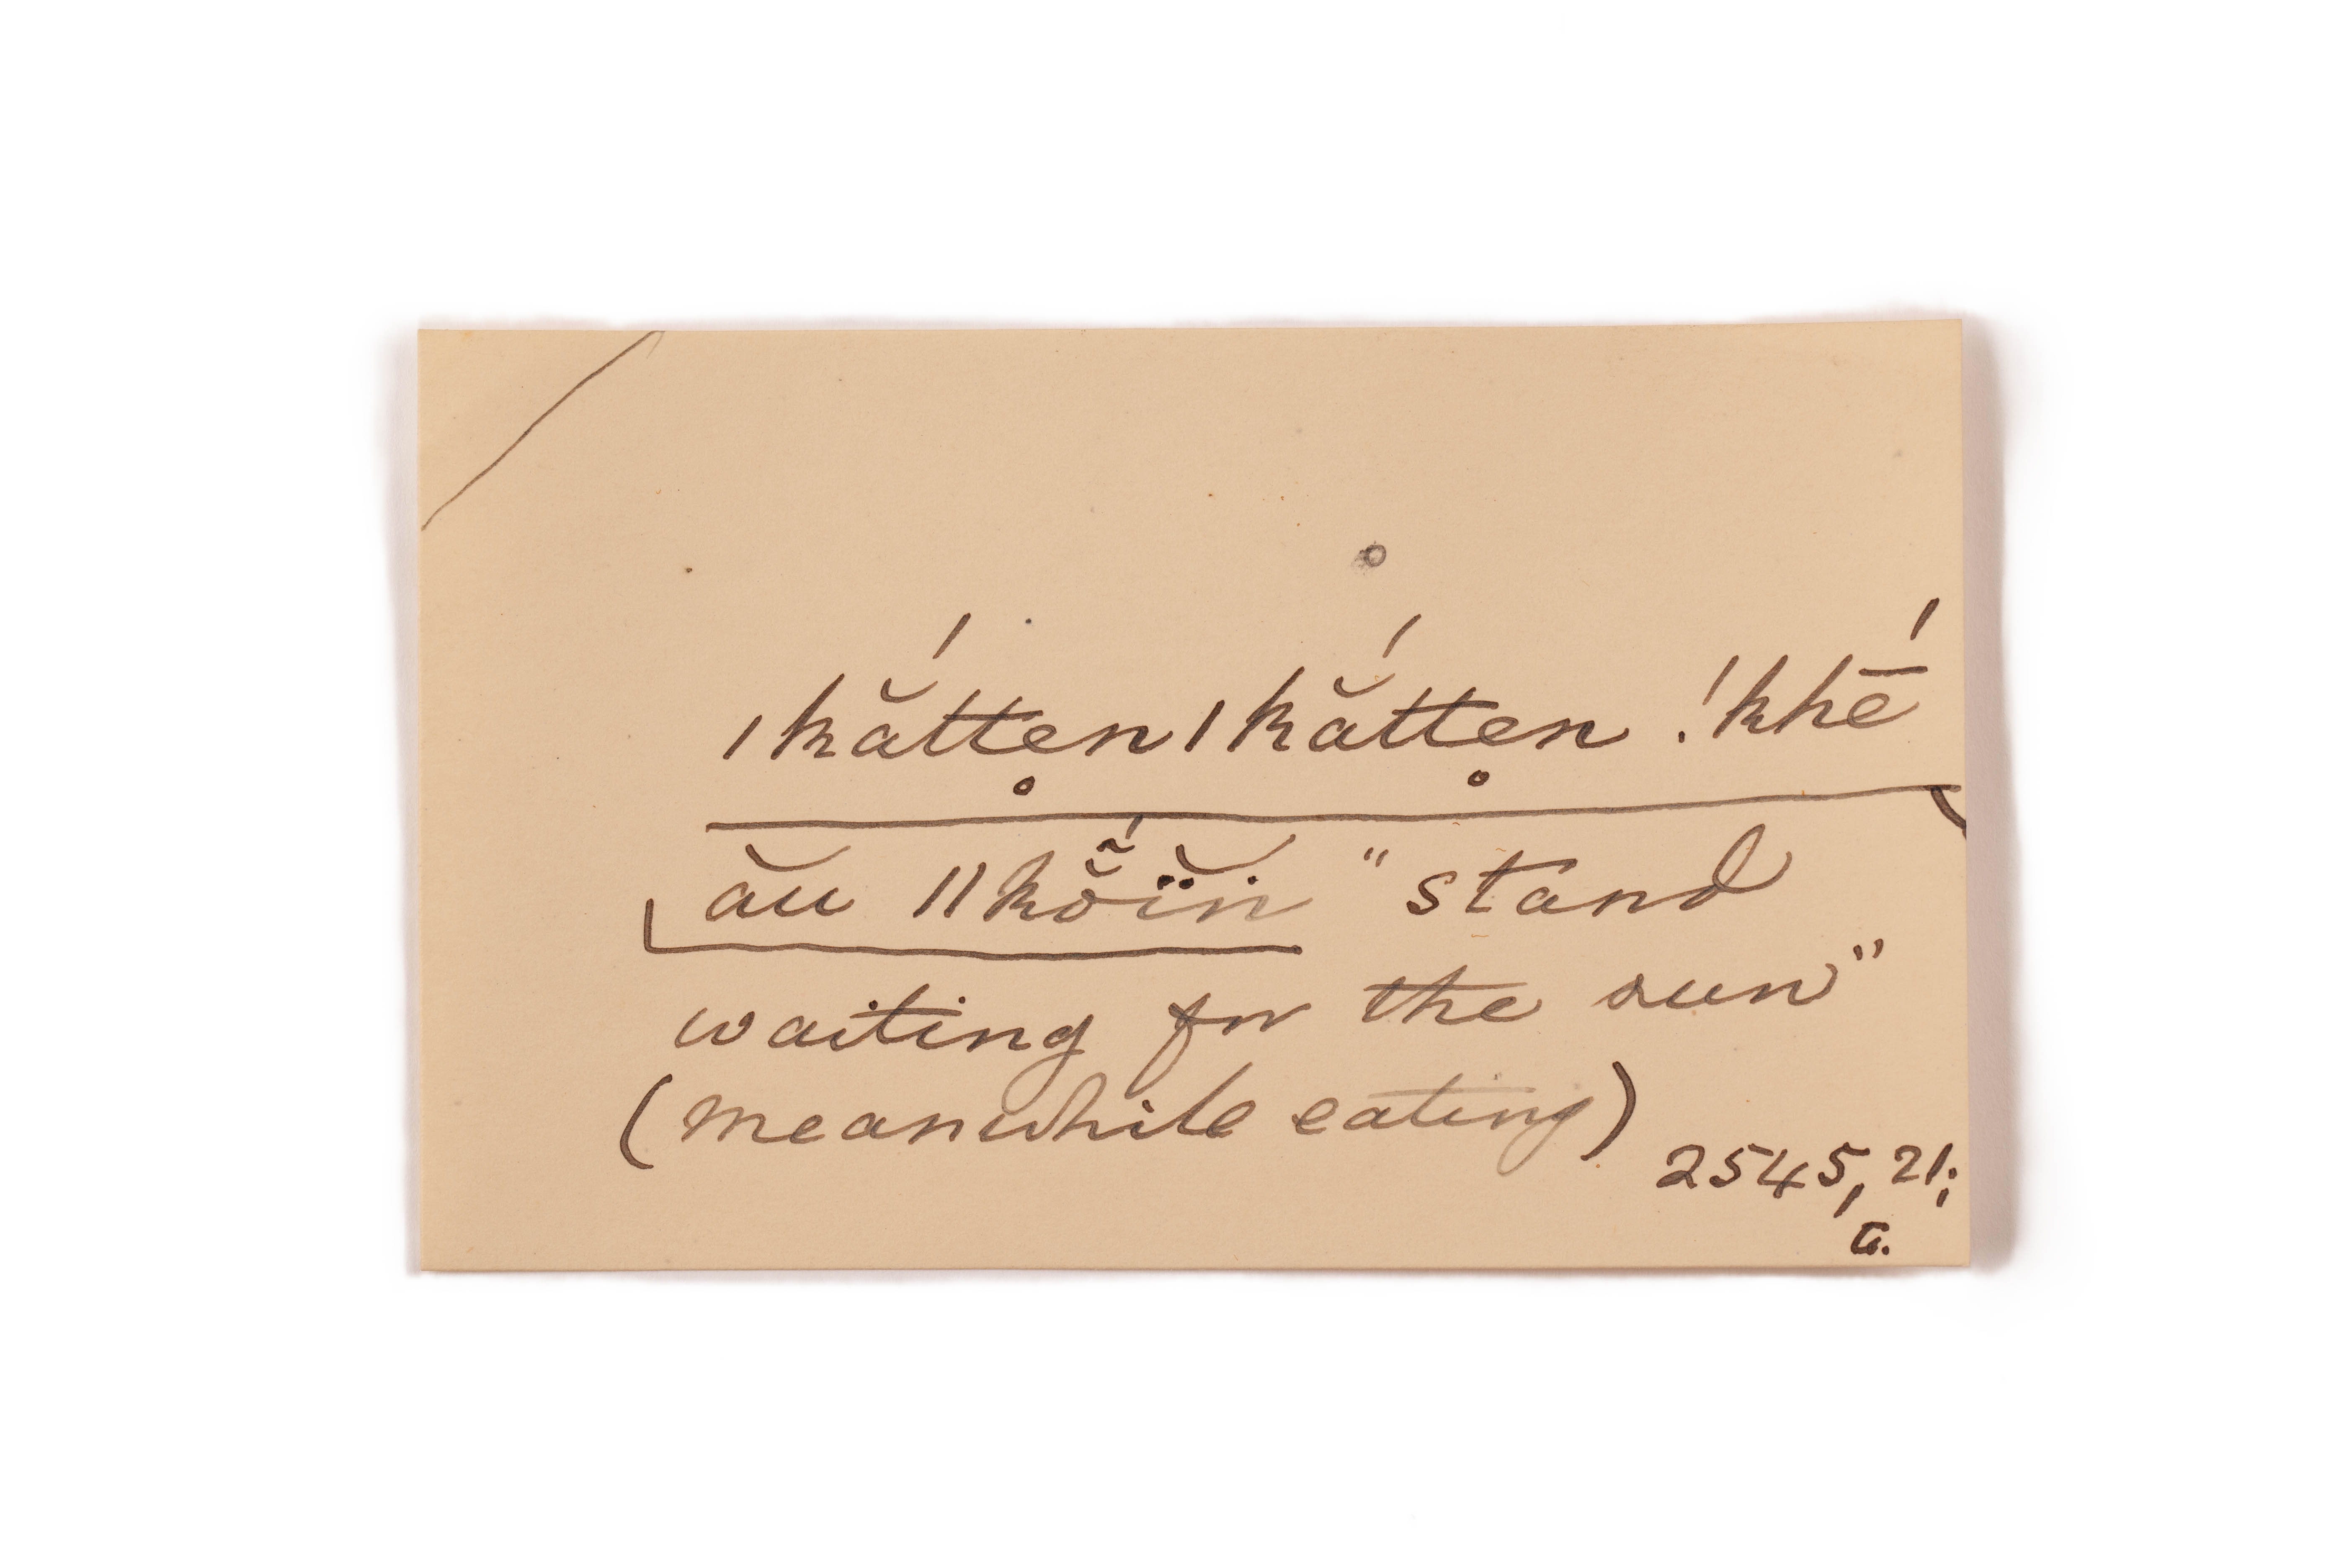 ǀkắttẹn ǀkắttẹn !khḗ
ău ǁkő̃ĭn "stand
waiting for the sun"
(meanwhile eating)
2545, 21;
a.